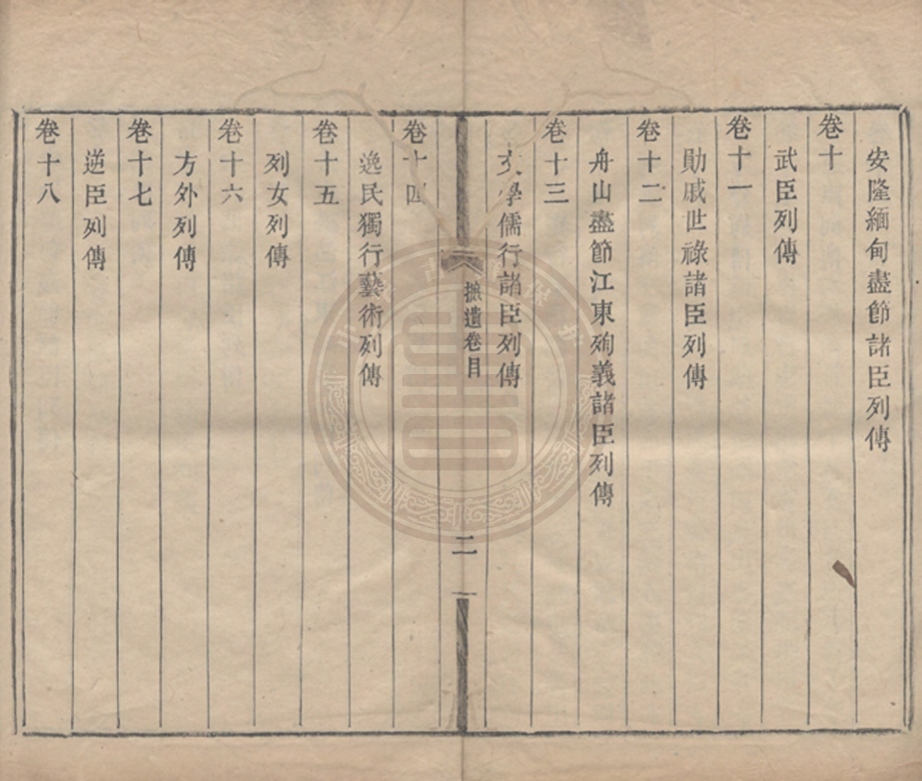 安隆緬甸盡節諸臣列傳
卷十
武臣列傳
卷十一
勛戚世祿諸臣列傳
卷十二
舟山盡節江東殉義諸臣列傳
卷十三
文學儒行諸臣列傳
摭遺卷目
二
卷十四
逸民獨行藝術列傳
卷十五
列女列傳
卷十六
方外列傳
卷十七
逆臣列傳
卷十八